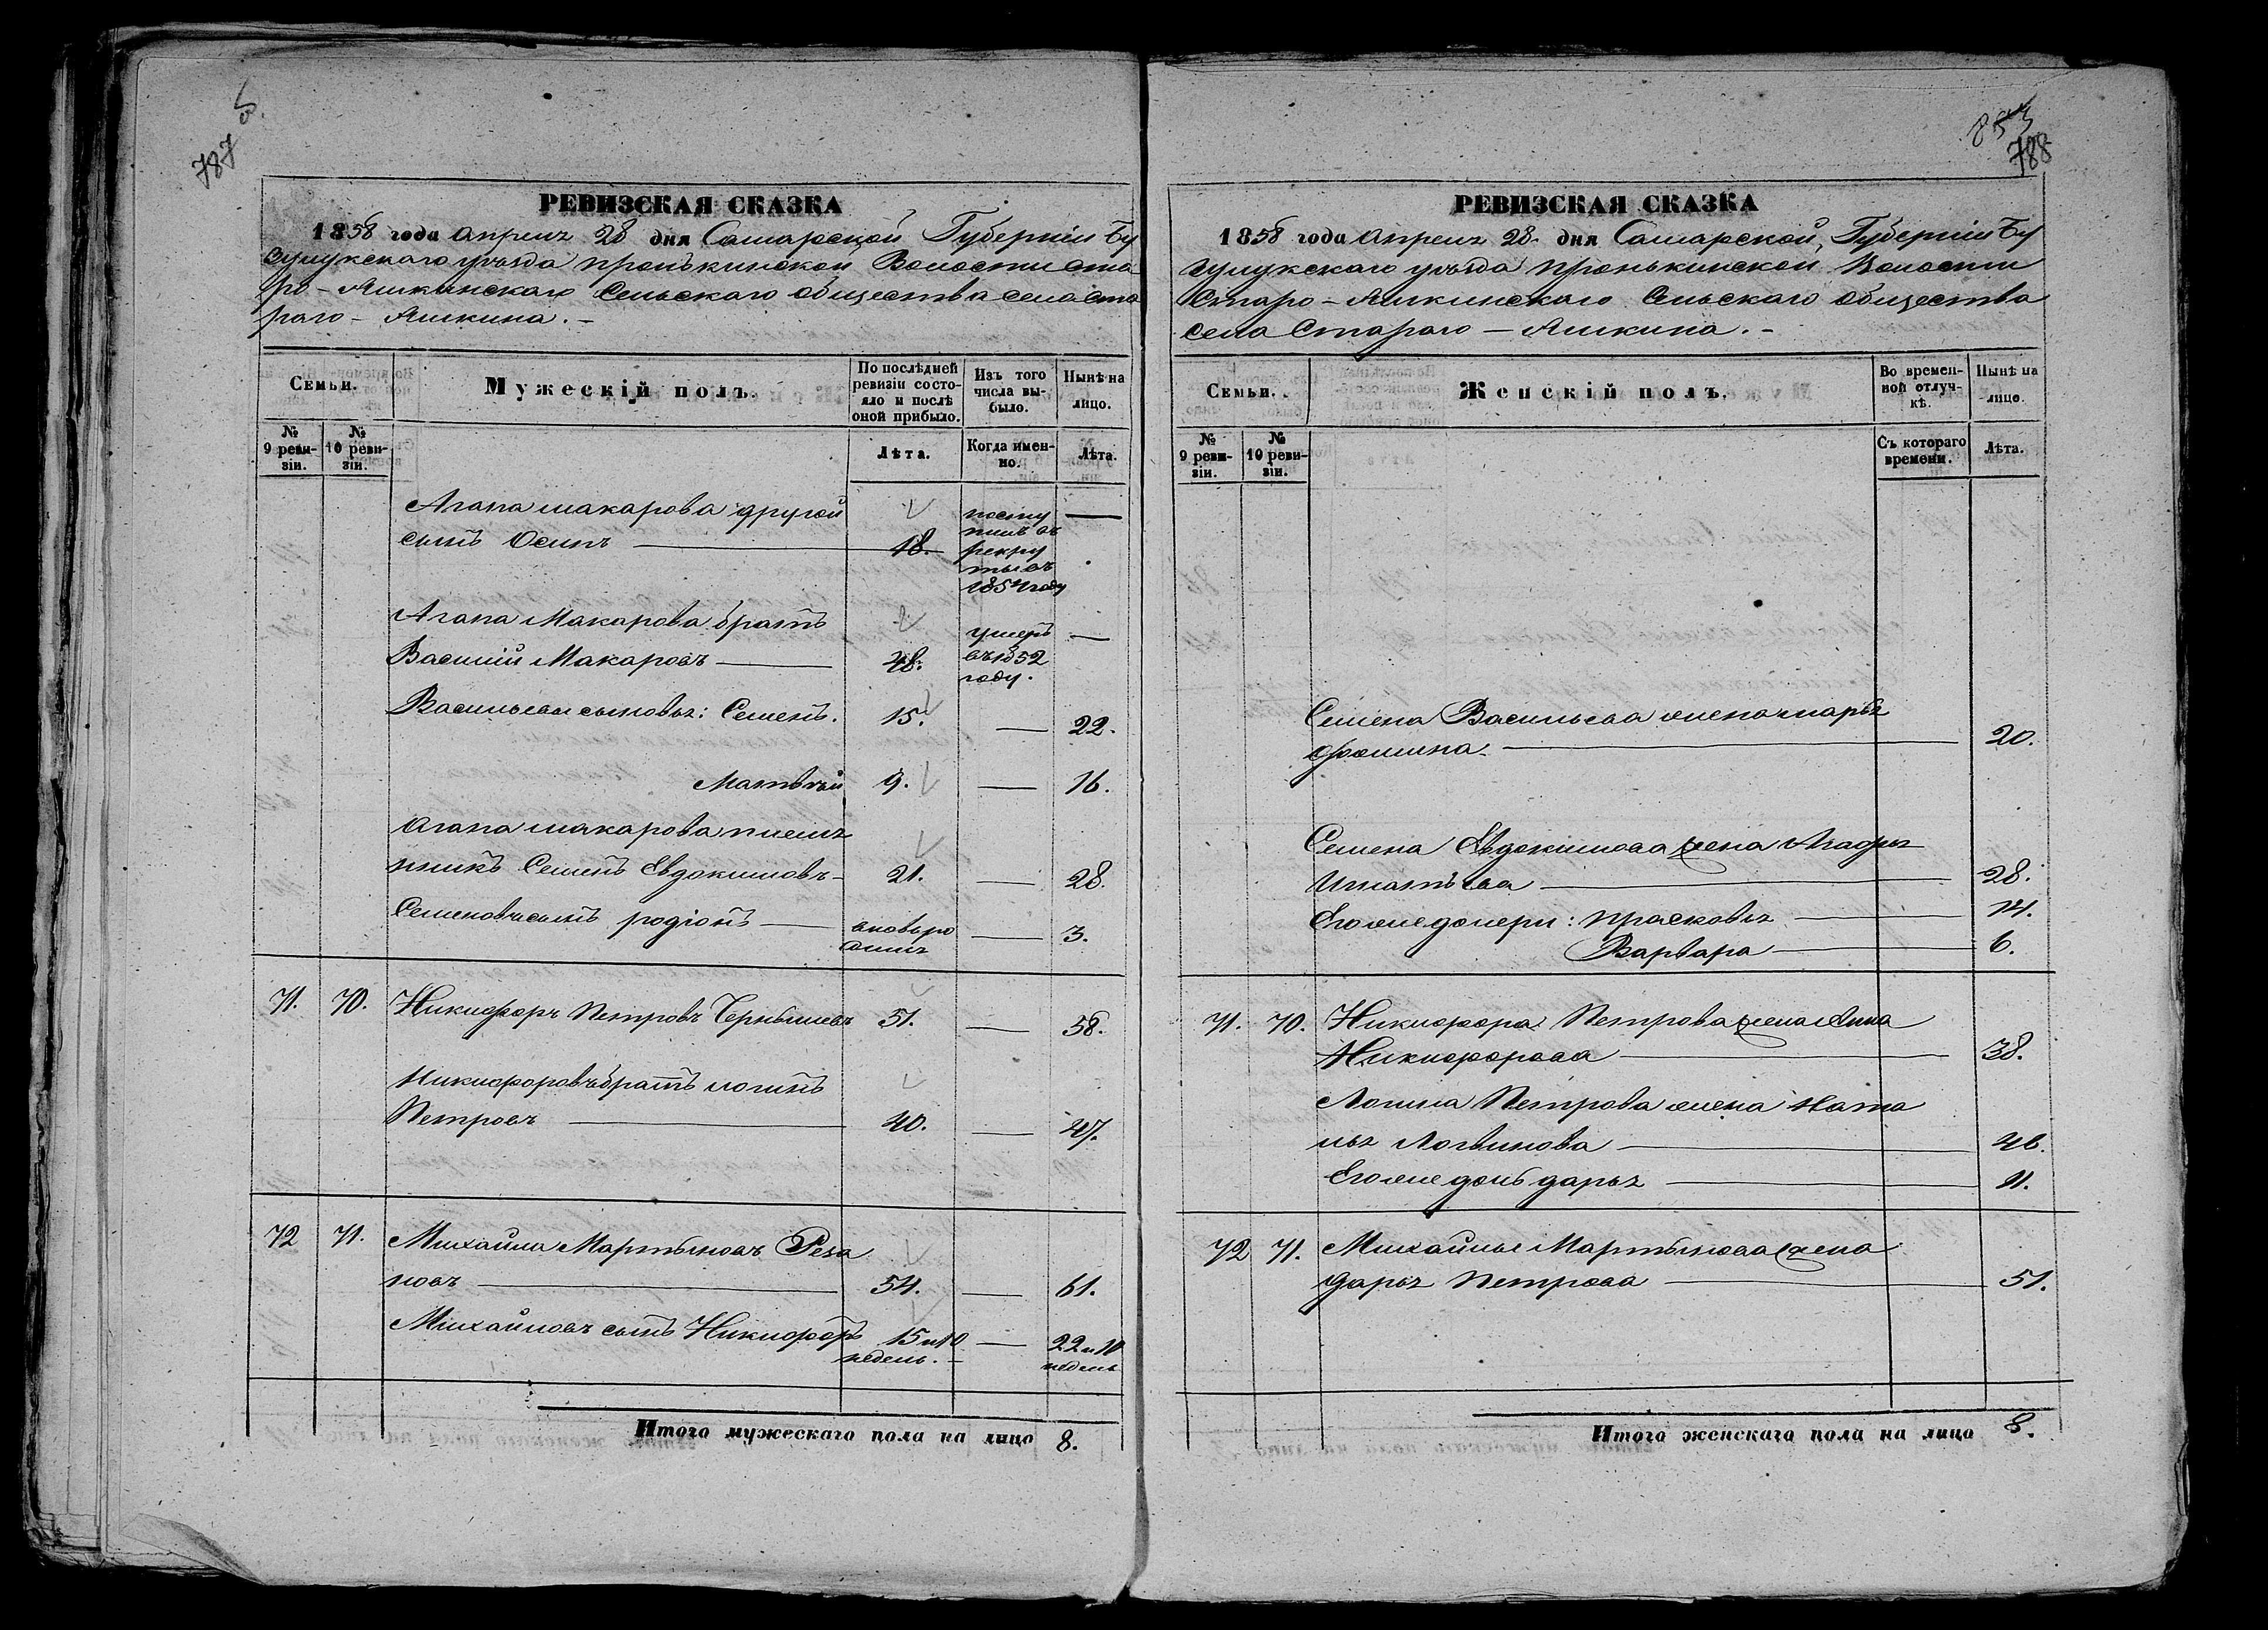 5.
787
РЕВИЗСКАЯ СКАЗКА
1858 года Апреля 28 дня Самарской Губернiи Бу
зулукскаго уѣзда Пронькинской Волости Ста
ро-Яшкинскаго Сельскаго общества села Ста
раго-Яшкина.-
Семьи.
Мужескiй полъ.
По послѣдней ревизiи состояло и послѣ оной прибыло.
Изъ того числа выбыло.
Нынѣ на лицо.
№ 9 ревизiи.
№ 10 ревизiи.
Лѣта.
Когда именно.
Лѣта.
Агапа Макарова другой
сынъ Осипъ — 18. поступилъ въ рекруты въ 1854 году —
Агапа Макарова братъ
Василiй Макаровъ — 48. умеръ въ 1852 году. —
Васильевы сыновья: Семенъ. 15. — 22.
Матвѣй 9. — 16.
Агапа Макарова племя
нникъ Семенъ Евдокимовъ — 21. — 28.
Семеновъ сынъ Родiонъ — вновь родился — 3.
71. 70. Никифоръ Петровъ Чернышевъ 51. — 58.
Никифоровъ братъ Логинъ
Петровъ — 40. — 47.
72 71. Михайла Мартыновъ Реза
новъ — 54. — 61.
Михайловъ сынъ Никифоръ 15 и 10 недель. — 22 и 10 недель
Итого мужескаго пола на лицо 8.
853
788
РЕВИЗСКАЯ СКАЗКА
1858 года Апреля 28 дня Самарской Губернiи Бу
зулукскаго уѣзда Пронькинской Волости
Старо-Яшкинскаго Сельскаго общества
села Стараго-Яшкина.-
Семьи.
Женскiй полъ.
Во временной отлучкѣ.
Нынѣ на лицо.
№ 9 ревизiи.
№ 10 ревизiи.
Съ котораго времени.
Лѣта.
Семена Васильева жена Марья
Фомина — 20.
Семена Евдокимова жена Агафья
Игнатьева — 28.
Его же дочери: Прасковья — 14.
Варвара — 6.
71. 70. Никифора Петрова жена Анна
Никифорова — 38.
Логина Петрова жена Ната
лья Логвинова — 46.
Его же дочь Дарья — 11.
72 71. Михайлы Мартынова жена
Дарья Петрова — 51.
Итого женскаго пола на лицо 8.